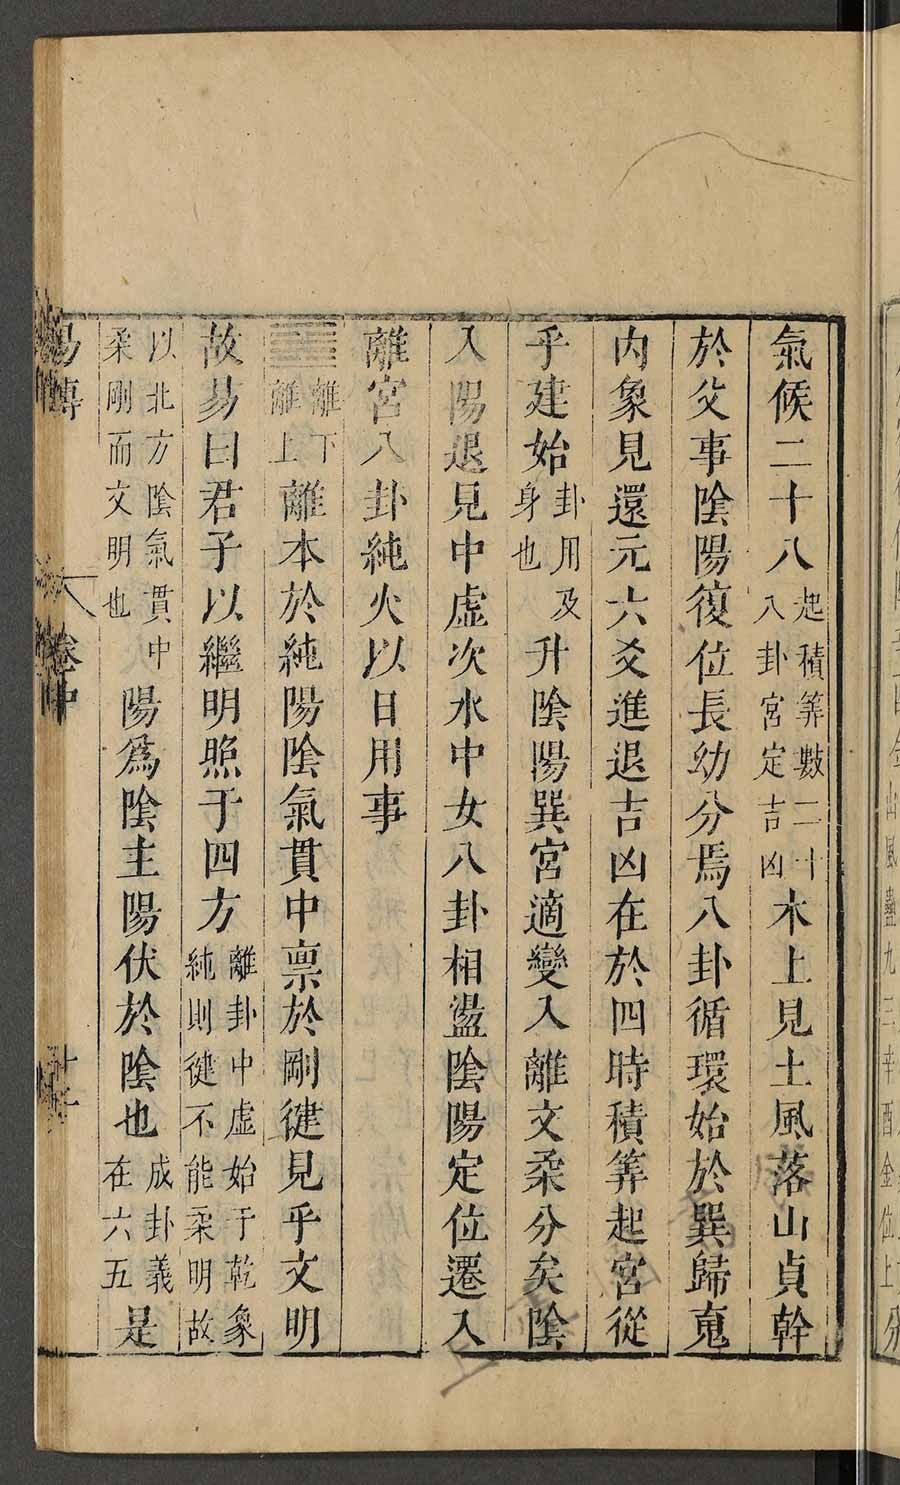 氣候二十八起積筭數二十八卦宮定吉凶木上見土風落山貞幹
於父事陰陽復位長幼分焉八卦循環始於巽歸䰟
内象見還元六爻進退吉凶在於四時積筭起宮從
乎建始卦用及身也升陰陽巽宮適變入離文柔分矣陰
入陽退見中虛次水中女八卦相盪陰陽定位遷入
離宮八卦純火以日用事
離下離上離本於純陽陰氣貫中禀於剛健見乎文明
故易曰君子以繼明照于四方離卦中虛始于乾象純則健不能柔明故
以北方陰氣貫中柔剛而文明也陽爲陰主陽伏於陰也成卦義在六五是
易傳 卷中